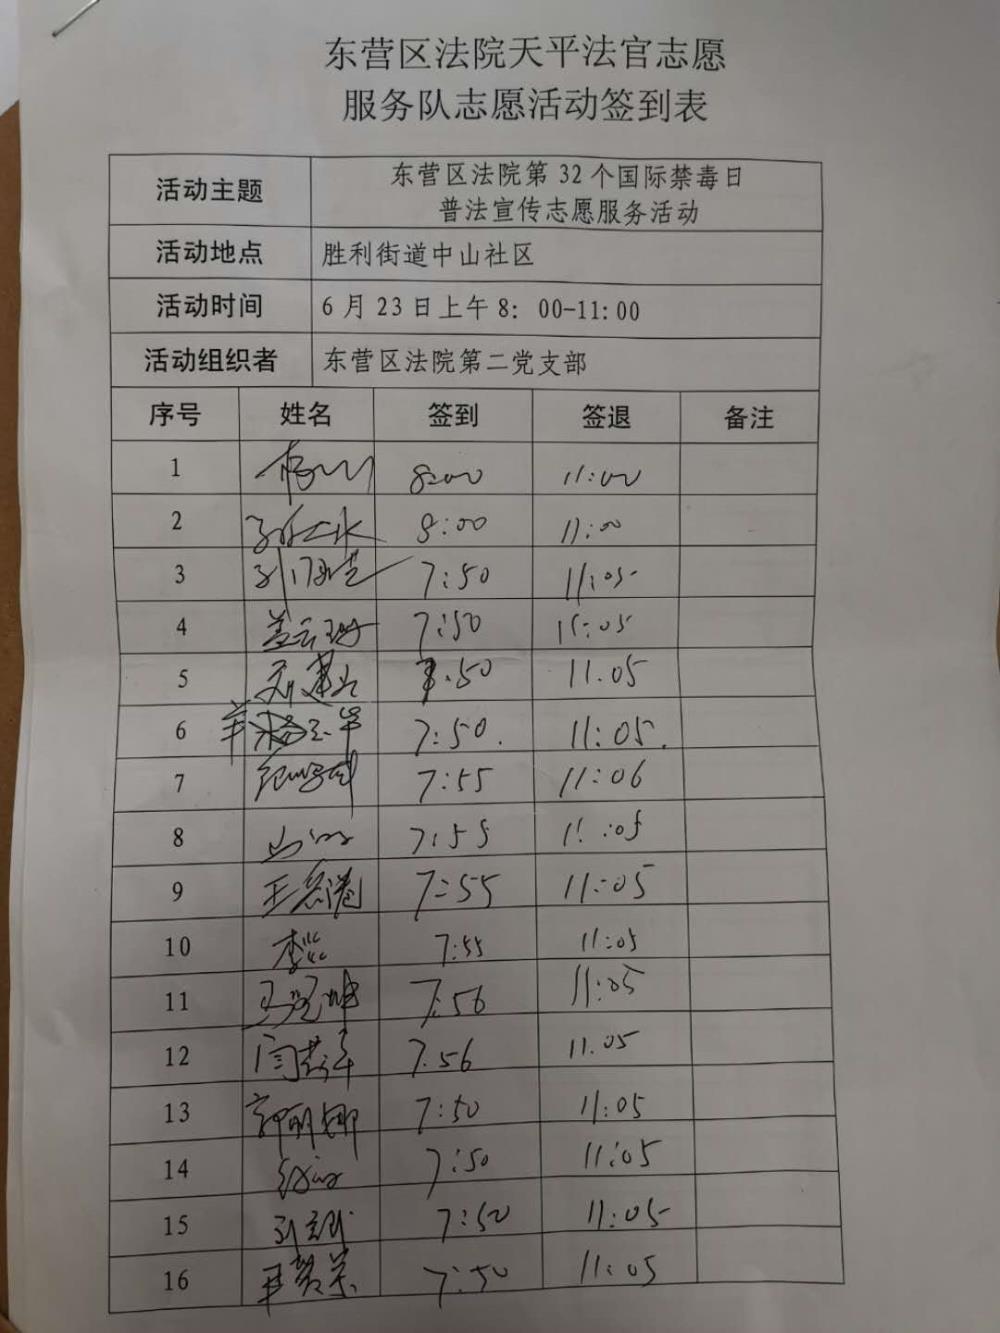 东营区法院天平法官志愿
服务队志愿活动签到表
活动主题 东营区法院第 32 个国际禁毒日
普法宣传志愿服务活动
活动地点 胜利街道中山社区
活动时间 6 月 23 日上午 8：00-11:00
活动组织者 东营区法院第二党支部
序号 姓名 签到 签退 备注
1 8:00 11:00
2 8:00 11:00
3 7:50 11:05
4 7:50 11:05
5 7.50 11.05
6 7:50. 11:05.
7 7:55 11:06
8 7:55 11:05
9 7:55 11:05
10 7:55 11:05
11 7:56 11:05
12 7.56 11.05
13 7:50 11:05
14 7:50 11:05
15 7:50 11:05
16 7:50 11:05